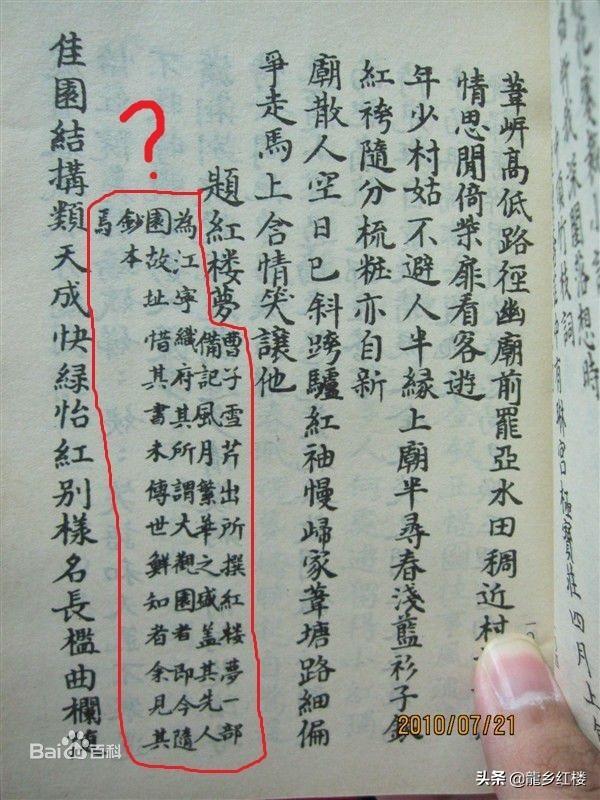 竹枝詞
中有琳宮極寶莊四月上
葦岍高低路徑幽廟前罷亞水田稠近村
情思閒倚柴扉看客遊
年少村姑不避人半緣上廟半尋春淺藍衫子銀
紅袴隨分梳粧亦自新
廟散人空日已斜跨驢紅袖慢歸家葦塘路細偏
爭走馬上含情笑讓他
題紅楼夢
曹子雪芹出所撰紅楼夢一部
備記風月繁華之盛盖其先人
為江寧織府其所謂大觀園者即今隨
園故址惜其書未傳世鮮知者余見其
鈔本
焉
佳園結搆類天成快緑怡紅别樣名長檻曲欄
?
2010/07/21
Bai百科
头条 @龍乡红楼